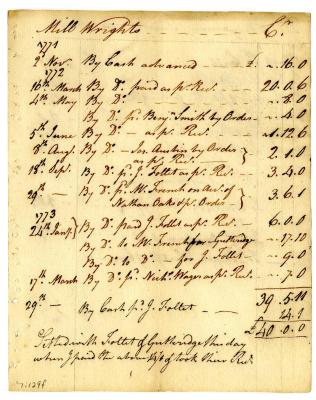 Mill Wrights Cr.
1771
2 Nov. By Cash advanced — £ „ 16. 0
1772
16th March By Do. paid as pr. Rec. 20. 0. 6
4th May By Do. „ 8. 0
By Do. pr. Benj. Smith by Order „ 4. 0
5th June By Do. — as pr. Rec. 12. 6
8th Augt. By Do. — Jn. Austin by Order
as pr. Rec. 2. 1. 0
18th Sepr. By Do. pr. J. Follet as pr. Rec. 3. 4. 0
29th — By Do. pr. M. French on Acc. of
Nathan Oaks pr. Order 3. 6. 1
1773
24th Jany. By Do. paid J. Follet as pr. Rec. 6. 0. 0
By Do. to M. French for Guttridge „ 17. 10
By Do. to Do. — for J. Follet „ 9. 0
17th March By Do. pr. Nichs. Wager as pr. Rec. „ 7. 0
29th — By Cash pr. J. Follet — 39. 5. 11
14. 1
£40. 0. 0
Settled with Follet & Guttridge this day
when I paid the above 14/1 & took their Rec.